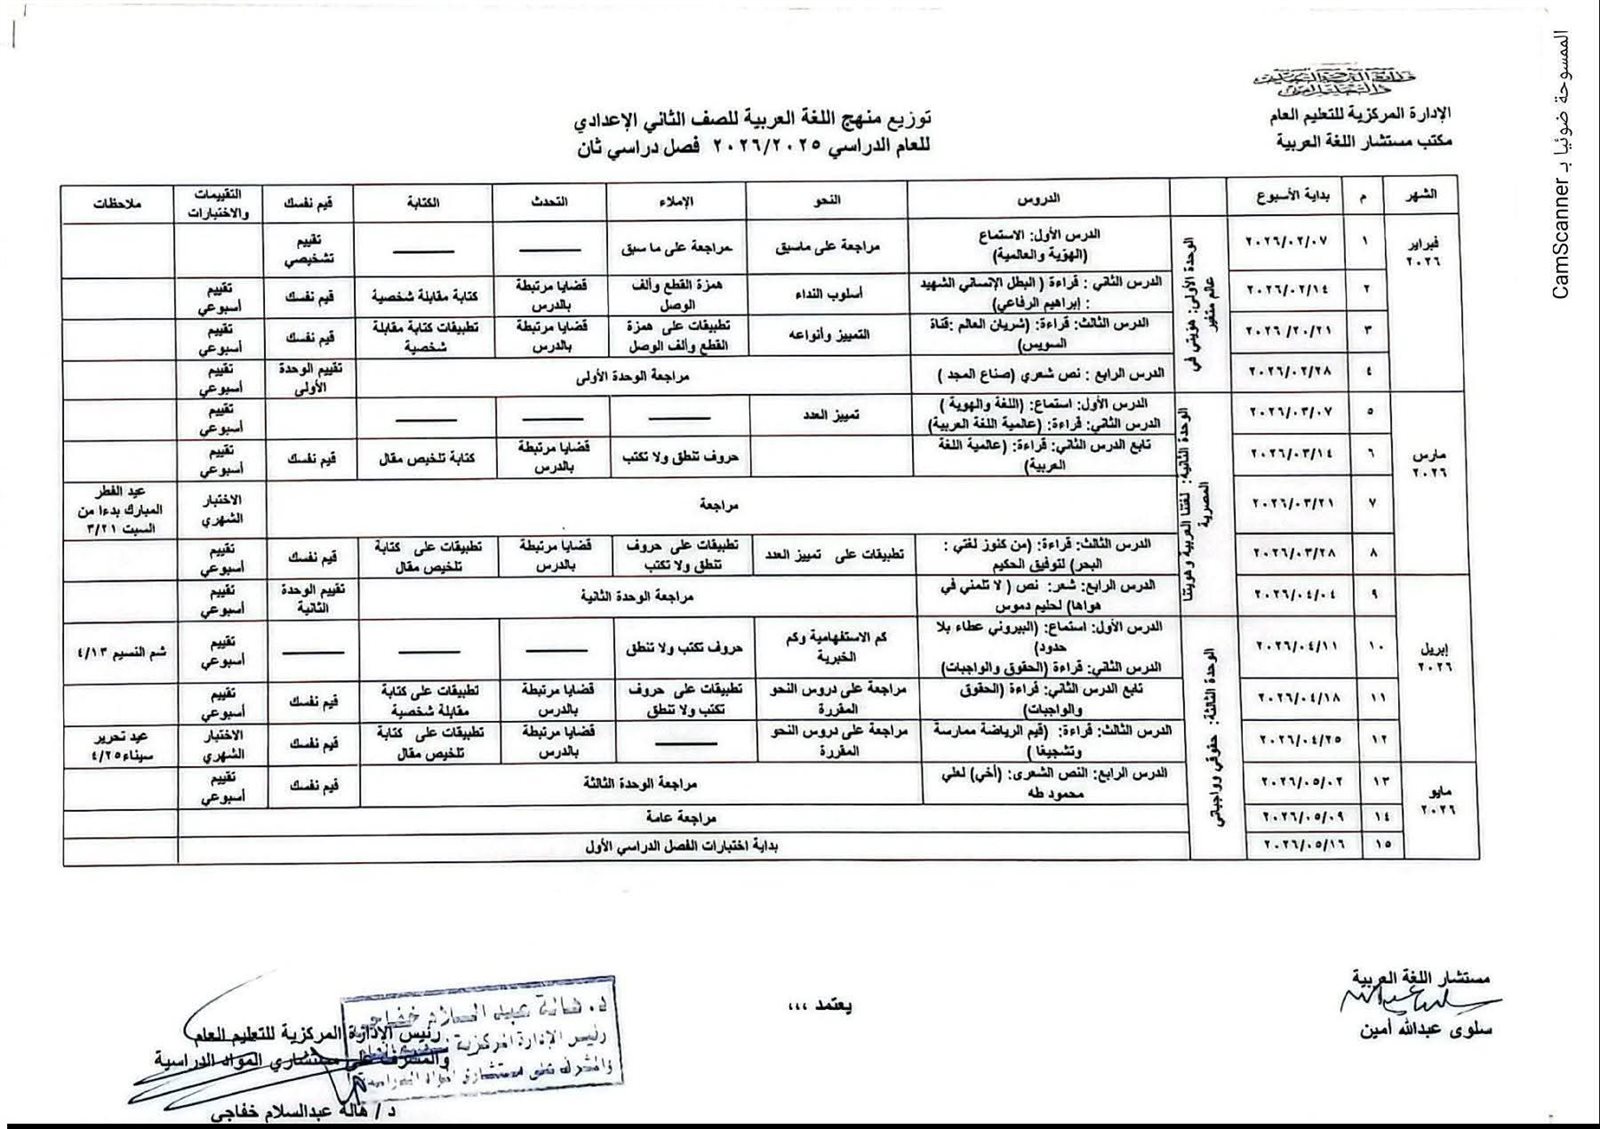 الممسوحة ضوئيا بـ CamScanner
وزارة التربية والتعليم
والتعليم الفني
الإدارة المركزية للتعليم العام
مكتب مستشار اللغة العربية
توزيع منهج اللغة العربية للصف الثاني الإعدادي
للعام الدراسي ٢٠٢٦/٢٠٢٥ فصل دراسي ثان
الشهر م بداية الأسبوع الدروس النحو الإملاء التحدث الكتابة قيم نفسك التقييمات والاختبارات ملاحظات
فبراير ٢٠٢٦
الوحدة الأولى: هويتي في عالم متغير
١ ٢٠٢٦/٠٢/٠٧ الدرس الأول: الاستماع (الهوية والعالمية) مراجعة على ماسبق مراجعة على ما سبق ــــــ ــــــ تقييم تشخيصي
٢ ٢٠٢٦/٠٢/١٤ الدرس الثاني : قراءة ( البطل الإنساني الشهيد : إبراهيم الرفاعي) أسلوب النداء همزة القطع وألف الوصل قضايا مرتبطة بالدرس كتابة مقابلة شخصية قيم نفسك تقييم أسبوعي
٣ ٢٠٢٦/٢٠/٢١ الدرس الثالث: قراءة: (شريان العالم :قناة السويس) التمييز وأنواعه تطبيقات على همزة القطع وألف الوصل قضايا مرتبطة بالدرس تطبيقات كتابة مقابلة شخصية قيم نفسك تقييم أسبوعي
٤ ٢٠٢٦/٠٢/٢٨ الدرس الرابع : نص شعري (صناع المجد ) مراجعة الوحدة الأولى تقييم الوحدة الأولى تقييم أسبوعي
مارس ٢٠٢٦
الوحدة الثانية: لغتنا العربية وهويتنا المصرية
٥ ٢٠٢٦/٠٣/٠٧ الدرس الأول: استماع: (اللغة والهوية ) الدرس الثاني: قراءة: (عالمية اللغة العربية) تمييز العدد ــــــ ــــــ ــــــ تقييم أسبوعي
٦ ٢٠٢٦/٠٣/١٤ تابع الدرس الثاني: قراءة: (عالمية اللغة العربية) حروف تنطق ولا تكتب قضايا مرتبطة بالدرس كتابة تلخيص مقال قيم نفسك تقييم أسبوعي
٧ ٢٠٢٦/٠٣/٢١ مراجعة الاختبار الشهري عيد الفطر المبارك بدءا من السبت ٣/٢١
٨ ٢٠٢٦/٠٣/٢٨ الدرس الثالث: قراءة: (من كنوز لغتي : البحر) لتوفيق الحكيم تطبيقات على تمييز العدد تطبيقات على حروف تنطق ولا تكتب قضايا مرتبطة بالدرس تطبيقات على كتابة تلخيص مقال قيم نفسك تقييم أسبوعي
إبريل ٢٠٢٦
٩ ٢٠٢٦/٠٤/٠٤ الدرس الرابع: شعر: نص ( لا تلمني في هواها) لحليم دموس مراجعة الوحدة الثانية تقييم الوحدة الثانية تقييم أسبوعي
الوحدة الثالثة: حقوقي وواجباتي
١٠ ٢٠٢٦/٠٤/١١ الدرس الأول: استماع: (البيروني عطاء بلا حدود) الدرس الثاني: قراءة (الحقوق والواجبات) كم الاستفهامية وكم الخبرية حروف تكتب ولا تنطق ــــــ ــــــ ــــــ تقييم أسبوعي شم النسيم ٤/١٣
١١ ٢٠٢٦/٠٤/١٨ تابع الدرس الثاني: قراءة: (الحقوق والواجبات) مراجعة على دروس النحو المقررة تطبيقات على حروف تكتب ولا تنطق قضايا مرتبطة بالدرس تطبيقات على كتابة مقابلة شخصية قيم نفسك تقييم أسبوعي
١٢ ٢٠٢٦/٠٤/٢٥ الدرس الثالث: قراءة: (قيم الرياضة ممارسة وتشجيعا ) مراجعة على دروس النحو المقررة ــــــ قضايا مرتبطة بالدرس تطبيقات على كتابة تلخيص مقال قيم نفسك الاختبار الشهري عيد تحرير سيناء ٤/٢٥
مايو ٢٠٢٦
١٣ ٢٠٢٦/٠٥/٠٢ الدرس الرابع: النص الشعرى: (أخي) لعلي محمود طه مراجعة الوحدة الثالثة قيم نفسك تقييم أسبوعي
١٤ ٢٠٢٦/٠٥/٠٩ مراجعة عامة
١٥ ٢٠٢٦/٠٥/١٦ بداية اختبارات الفصل الدراسي الأول
مستشار اللغة العربية
سلوى عبدالله أمين
يعتمد ،،،
رئيس الإدارة المركزية للتعليم العام
والمشرف على مستشاري المواد الدراسية
د / هالة عبدالسلام خفاجي
د. هالة عبد السلام خفاجي
رئيس الإدارة المركزية
والمشرف على مستشاري المواد الدراسية